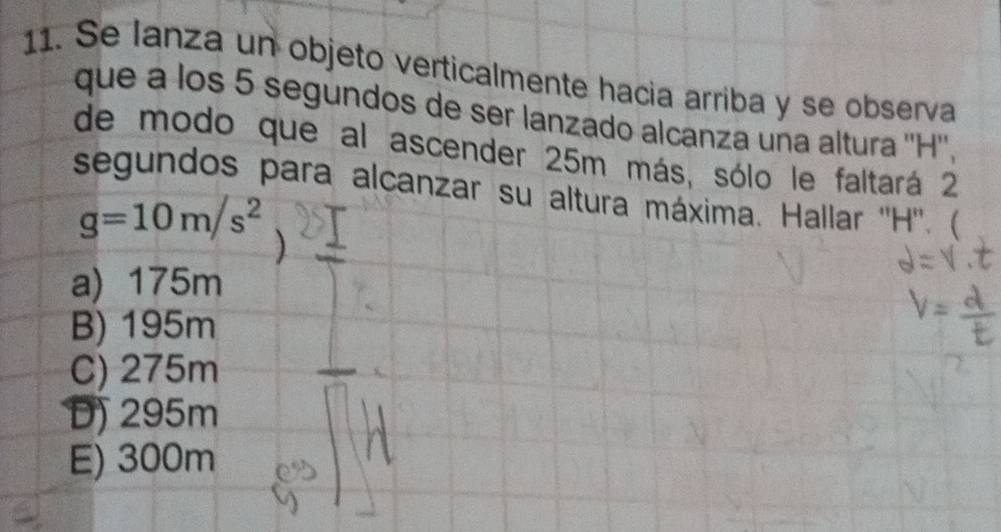 11. Se lanza un objeto verticalmente hacia arriba y se observa
que a los 5 segundos de ser lanzado alcanza una altura "H",
de modo que al ascender 25m más, sólo le faltará 2
segundos para alcanzar su altura máxima. Hallar "H". (
g=10 m/s² )
a) 175m
B) 195m
C) 275m
D) 295m
E) 300m
25
H
d=v.t
v=d/t